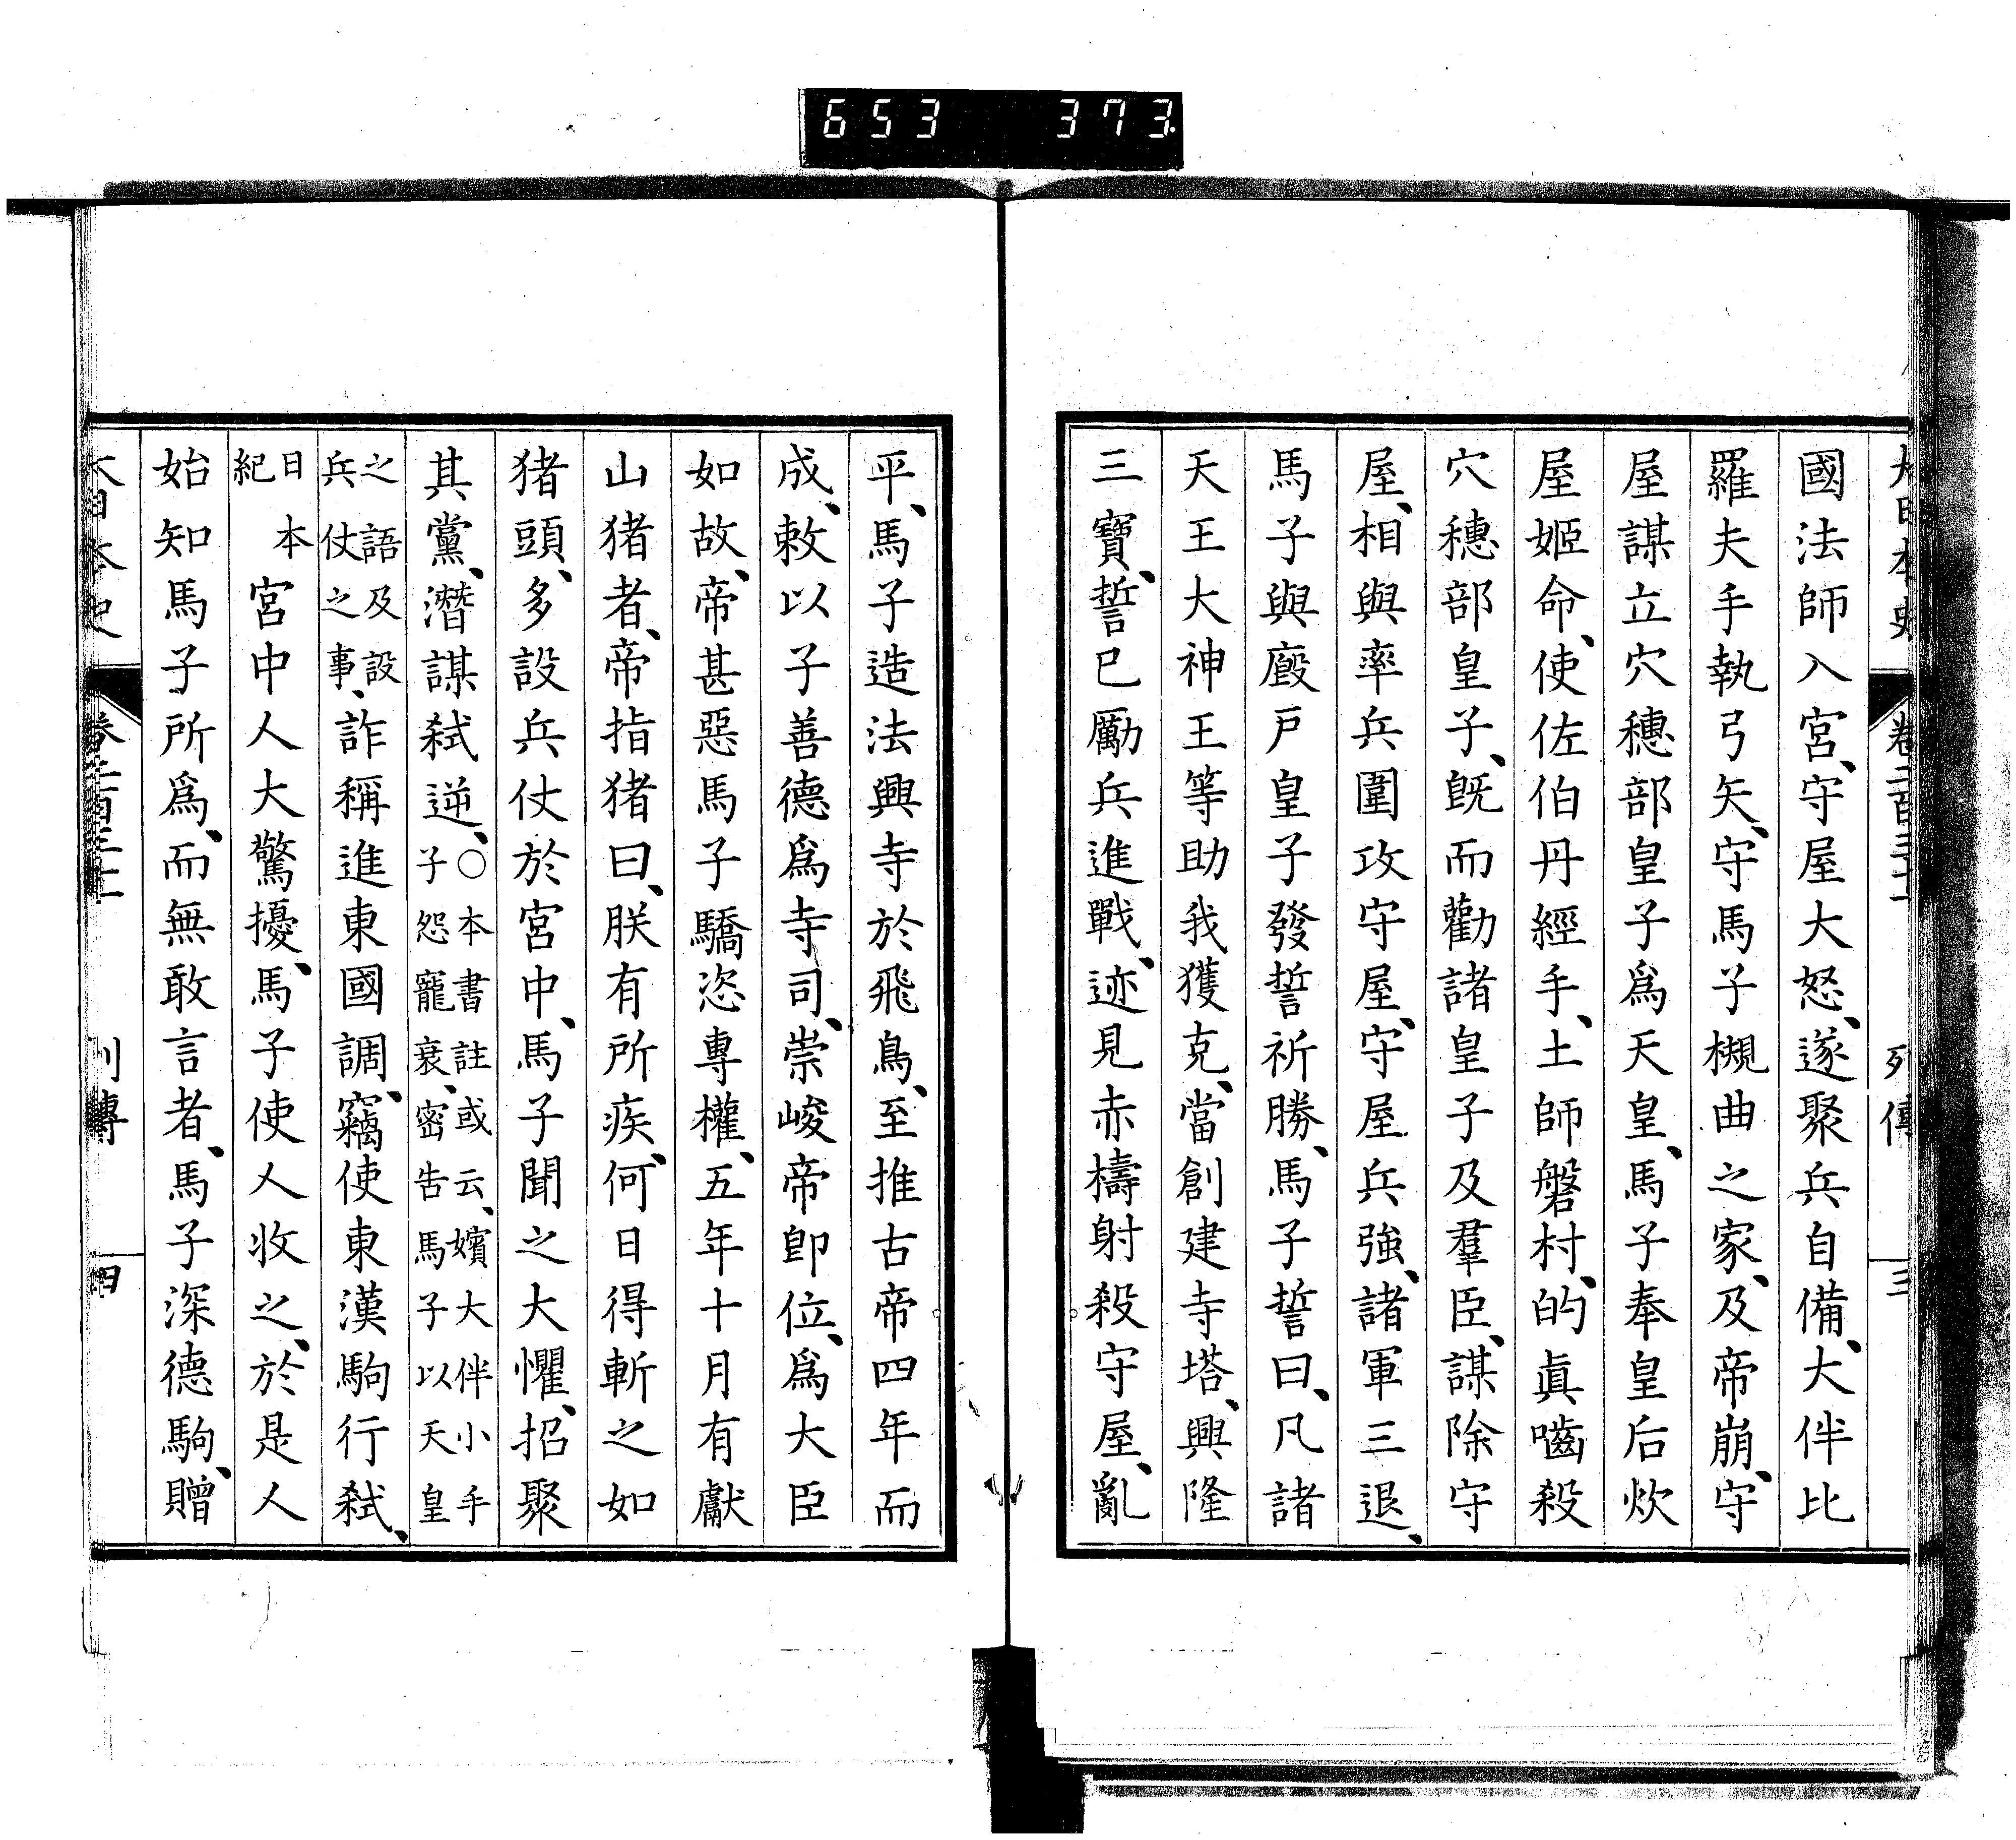 653 373
大日本史 卷二百三十一 列傳 三
國法師入宮、守屋大怒、遂聚兵自備、大伴比
羅夫手執弓矢、守馬子槻曲之家、及帝崩、守
屋謀立穴穗部皇子爲天皇、馬子奉皇后炊
屋姬命、使佐伯丹經手、土師磐村、的眞嚙殺
穴穗部皇子、旣而勸諸皇子及羣臣、謀除守
屋、相與率兵圍攻守屋、守屋兵強、諸軍三退、
馬子與廐戶皇子發誓祈勝、馬子誓曰、凡諸
天王大神王等助我獲克、當創建寺塔、興隆
三寶、誓已勵兵進戰、迹見赤檮射殺守屋、亂
平、馬子造法興寺於飛鳥、至推古帝四年而
成、敕以子善德爲寺司、崇峻帝卽位、爲大臣
如故、帝甚惡馬子驕恣專權、五年十月有獻
山猪者、帝指猪曰、朕有所疾、何日得斬之如
猪頭、多設兵仗於宮中、馬子聞之大懼、招聚
其黨、潛謀弑逆、○本書註或云、嬪大伴小手
子怨寵衰、密告馬子以天皇
之語及設
兵仗之事、詐稱進東國調、竊使東漢駒行弑、
日本
紀 宮中人大驚擾、馬子使人收之、於是人
始知馬子所爲、而無敢言者、馬子深德駒、贈
大日本史 卷 列傳 四